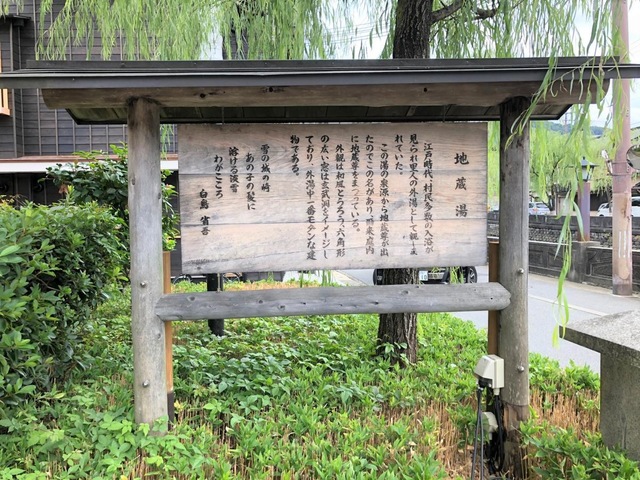 地蔵湯
江戸時代、村民多数の入浴が
見られ里人の外湯として親しま
れていた。
この湯の泉源から地蔵尊が出
たのでこの名があり、
に地蔵尊をまつっている。
外観は和風とうろう、六角形
の広い窓は玄武洞をイメージし
ており、外湯中一番モダンな建
物である。
雪の城の崎
あの子の髪に
溶ける淡雪
わがこころ
白鳥省吾